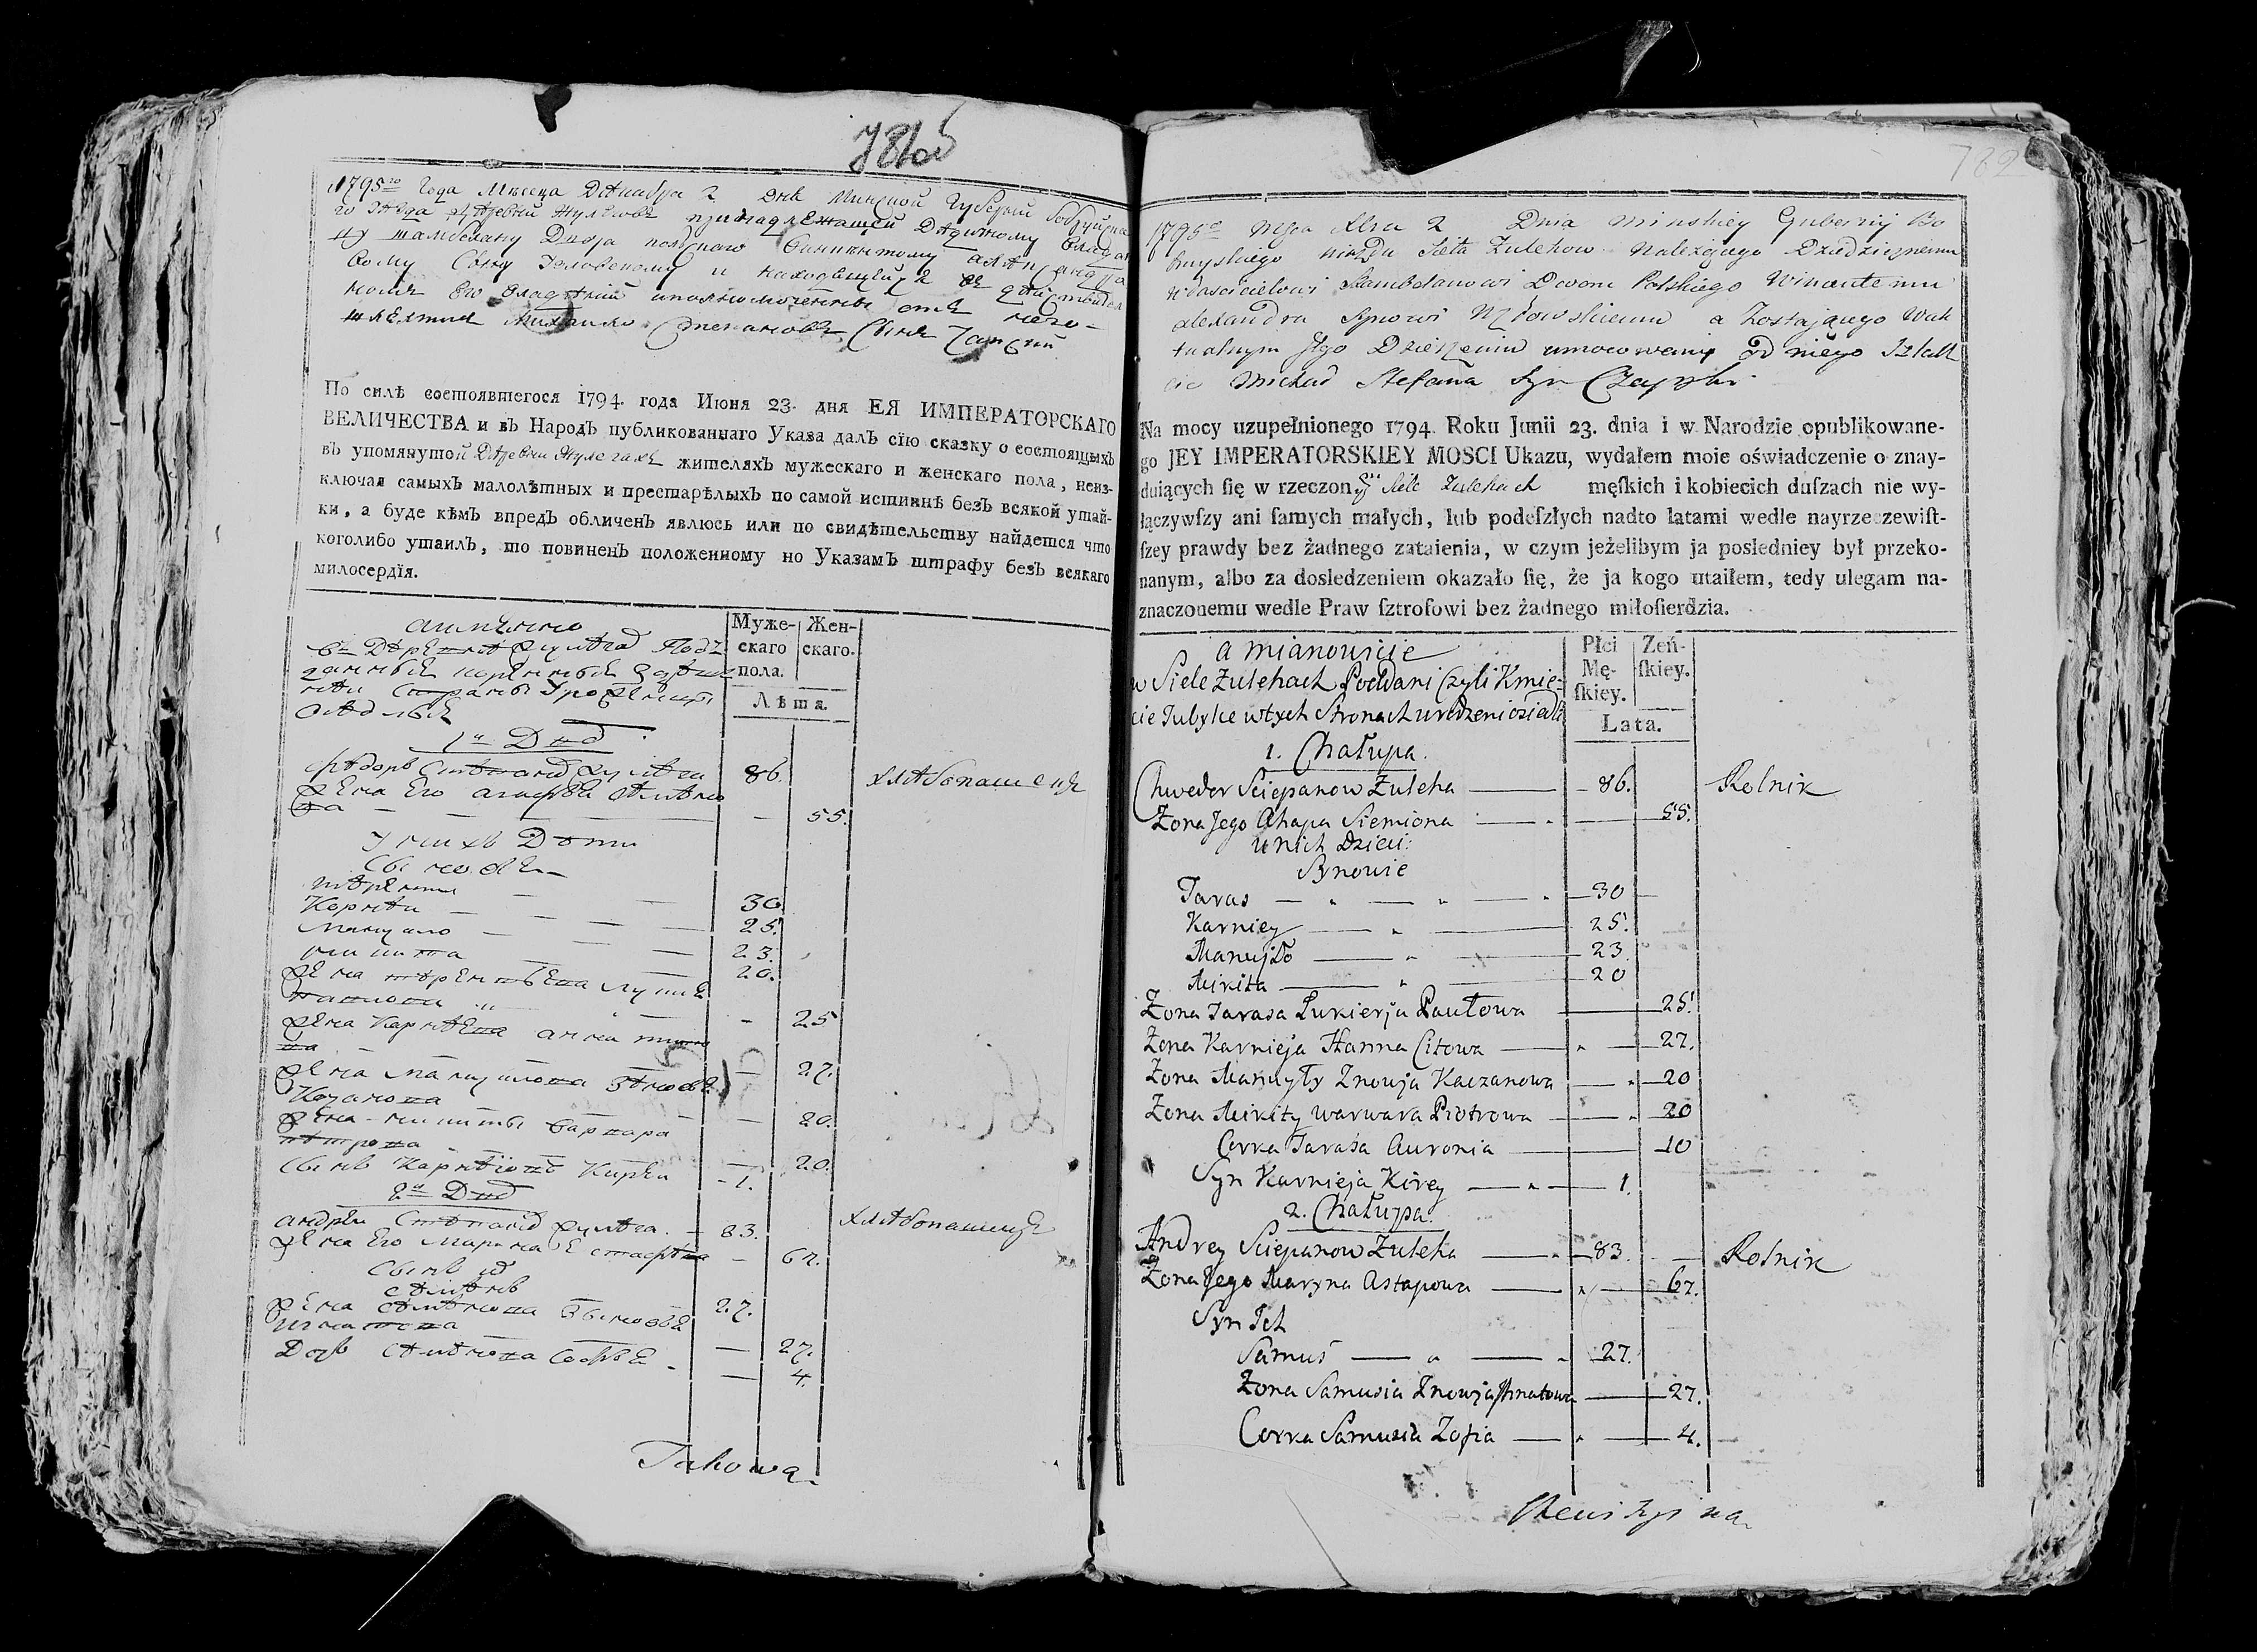 781об
1795го Года Месеца Декабря 2 Дня Минской Губернии Бобруйска
го
принадлежащей Дедичному Влад
Двора польскаго Викентому
Сыну и находящейся в
Его уполномоченный от него
Степановъ Сынъ Чапский
По силѣ состоявшегося 1794. года Июня 23. дня ЕЯ ИМПЕРАТОРСКАГО
ВЕЛИЧЕСТВА и въ НародЪ публикованнаго Указа далЪ сїю сказку о состоящыхЪ
въ упомянутой Деревни Жулегахъ жителяхЪ мужескаго и женскаго пола, неиз-
ключая самыхЪ малолѣтных и престарѣлыхЪ по самой истиннѣ безЪ всякой утай-
ки, а буде кѣмЪ впредЪ обличенЪ явлюсь или по свидѣтельству найдется что
коголибо утаилЪ, то повиненЪ положенному по УказамЪ штрафу безЪ всякаго
милосердїя.
аименно
Муже-скаго пола. Жен-скаго.
Лѣта.
1й Двор
Федоръ Степанов Жулега 86. хлебопашецъ
жена Его Агафья Семено
ва 55.
У них Дети
Сыновья
Терентий 30.
Корней 25.
Мануило 23.
Никита 20.
жена Терентьева
Павлова 25
жена Корнеева Анна Тито
ва 27.
жена Мануилова Зеновья
Козанова 20.
жена Никиты Варвара
Петрова 20.
Сынъ Корнеёвъ Кирей 1.
2й Двор
Андрей Степанов Жулега 83. хлебопашецъ
жена Его Марина Естафева 67.
Сынъ их
27.
жена Зеновья
Игнатова 27.
Дочь Софья 4.
Takowa
782
1795o Msca Xbra 2 Dnia Minskiey Gubernij Bo
bruyskiego Sieła Zulehow Należącego Dziedzicznemu
włascicielowi Szambelanowi Dworu Polskiego Wincentemu
Alexandra Synowi a Zostającego w ak
tualnym Jego Dzierżeniu umocowany od niego Szlach
cic Michał Stefana Syn Czapski
Na mocy uzupełnionego 1794. Roku Junii 23. dnia i w Narodzie opublikowane-
go JEY IMPERATORSKIEY MOSCI Ukazu, wydałem moie oświadczenie o znay-
duiących ſię w rzeczonym Siele Zulehach męſkich i kobiecich duſzach nie wy-
łączywſzy ani ſamych małych, lub podeſzłych nadto latami wedle nayrzeczewiſt-
ſzey prawdy bez żadnego zataienia, w czym jeżelibym ja posledniey był przeko-
nanym, albo za dosledzeniem okazało ſię, że ja kogo utaiłem, tedy ulegam na-
znaczonemu wedle Praw ſztrofowi bez żadnego miłoſierdzia.
a mianowicie
Płci Mę-ſkiey. Zeń-ſkiey.
w Siele Zulehach Poddani Czyli Kmie-
cie Tubylce w tych Stronach urodzeni osiedli
Lata.
1. Chałupa.
Chwedor Sciepanow Zuleha 86. Rolnik
Zona Jego Ahapa Siemiona 55.
u nich Dzieci:
Synowie
Taras 30
Karniey 25.
Manuyło 23
Mikita 20
Zona Tarasa Lukierja Pautowa 25.
Zona Karnieja Hanna Citowa 27.
Zona Manuyły Znowja Kaczanowa 20
Zona Mikity Warwara Piotrowa 20
Corka Tarasa Auronia 10
Syn Karnieja Kirey 1.
2. Chałupa.
Andrey Sciepanow Zuleha 83. Rolnik
Zona Jego Maryna Astapowa 67.
Syn Ich
Samuś 27.
Zona Samusia Znowja Ihnatowa 27.
Corka Samusia Zofia 4.
Rewizyina